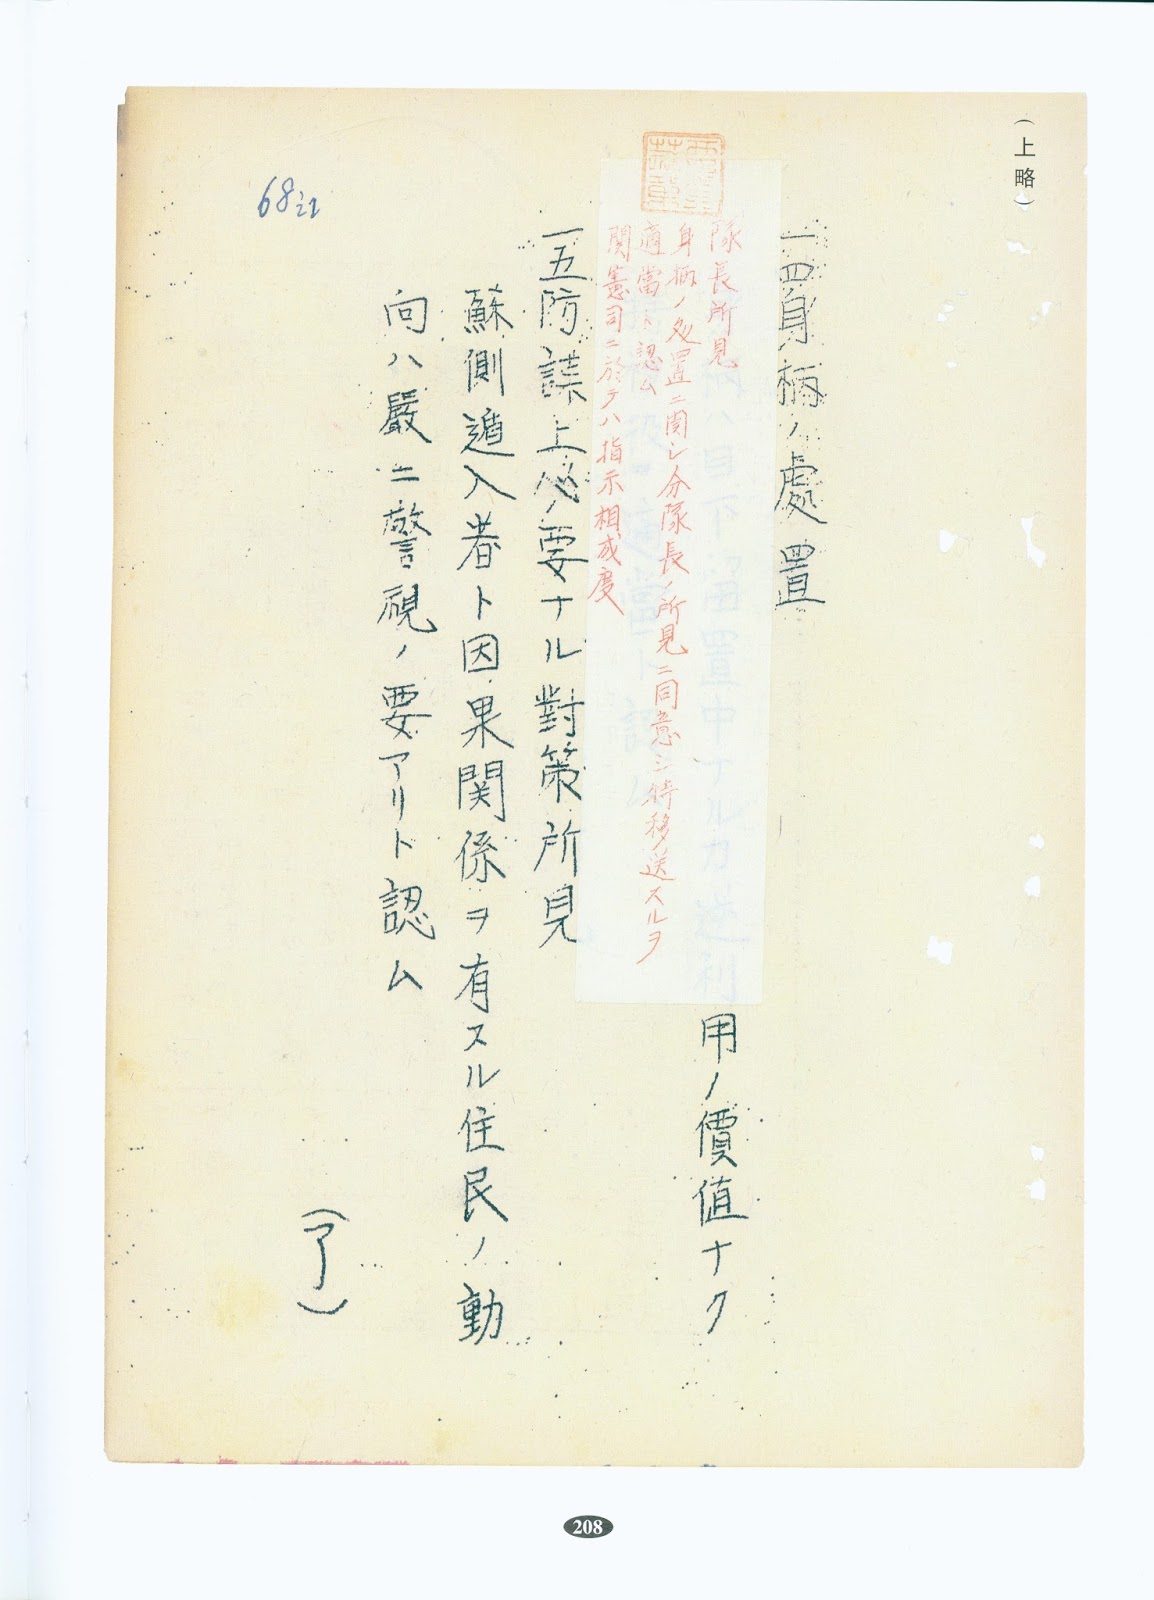 （上略）
一四、身柄ノ處置
身柄ハ目下留置中ナルカ逆利用ノ價値ナク
隊長所見
身柄ノ処置ニ関シ分隊長ノ所見ニ同意シ特移送スルヲ
適當ト認ム
関憲司ニ於テハ指示相成度
一五、防諜上必要ナル對策所見
蘇側遁入者ト因果関係ヲ有スル住民ノ動
向ハ嚴ニ警視ノ要アリト認ム
（了）
68
208